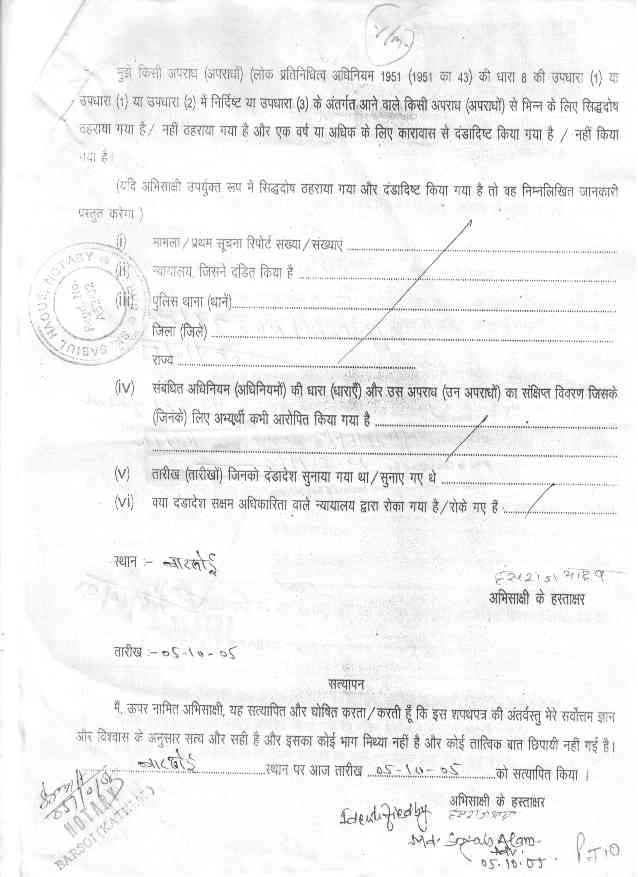 मुझे किसी अपराध (अपराधों) (लोक प्रतिनिधित्व अधिनियम 1951 (1951 का 43) की धारा 8 की उपधारा (1) या
उपधारा (1) या उपधारा (2) में निर्दिष्ट या उपधारा (3) के अंतर्गत आने वाले किसी अपराध (अपराधों) से भिन्न के लिए सिद्धदोष
ठहराया गया है / नहीं ठहराया गया है और एक वर्ष या अधिक के लिए कारावास से दंडादिष्ट किया गया है / नहीं किया
गया है।
(यदि अभिसाक्षी उपर्युक्त रूप में सिद्धदोष ठहराया गया और दंडादिष्ट किया गया है तो वह निम्नलिखित जानकारी
प्रस्तुत करेगा )
(i) मामला / प्रथम सूचना रिपोर्ट संख्या / संख्याएं
(ii) न्यायालय, जिसने दंडित किया है
(iii) पुलिस थाना (थानें)
जिला (जिले)
राज्य
SABIUL HAQUE, NOTARY
(iv) संबंधित अधिनियम (अधिनियमों) की धारा (धाराएँ) और उस अपराध (उन अपराधों) का संक्षिप्त विवरण जिसके
(जिनके) लिए अभ्यर्थी कभी आरोपित किया गया है
(v) तारीख (तारीखों) जिनको दंडादेश सुनाया गया था / सुनाए गए थे
(vi) क्या दंडादेश सक्षम अधिकारिता वाले न्यायालय द्वारा रोका गया है / रोके गए हैं
स्थान :- बारसोई
हंसराज यादव
अभिसाक्षी के हस्ताक्षर
तारीख :- 05-10-05
सत्यापन
मैं, ऊपर नामित अभिसाक्षी, यह सत्यापित और घोषित करता / करती हूँ कि इस शपथपत्र की अंतर्वस्तु मेरे सर्वोत्तम ज्ञान
और विश्वास के अनुसार सत्य और सही है और इसका कोई भाग मिथ्या नहीं है और कोई तात्विक बात छिपायी नहीं गई है।
बारसोई स्थान पर आज तारीख 05-10-05 को सत्यापित किया ।
अभिसाक्षी के हस्ताक्षर
NOTARY
BARSOI (KATIHAR)
Identified by
Md. Alam
Adv.
05.10.05